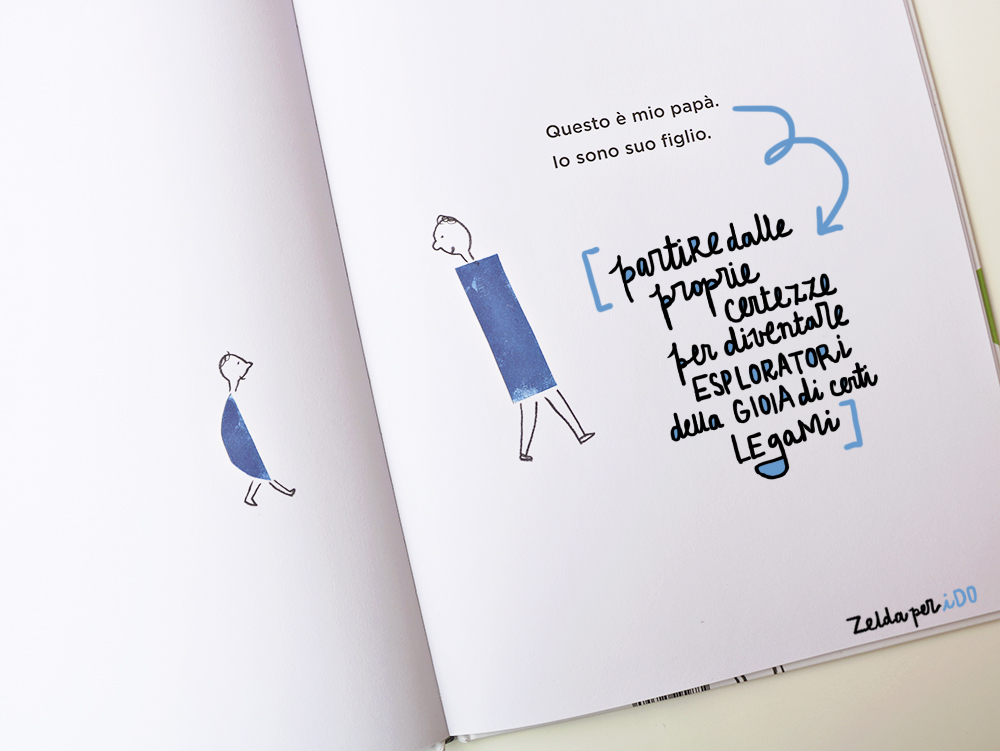 Questo è mio papà.
Io sono suo figlio.
[partire dalle
proprie
certezze
per diventare
ESPLORATORi
della GIOIA di certi
LEgaMi]
Zelda per iDO